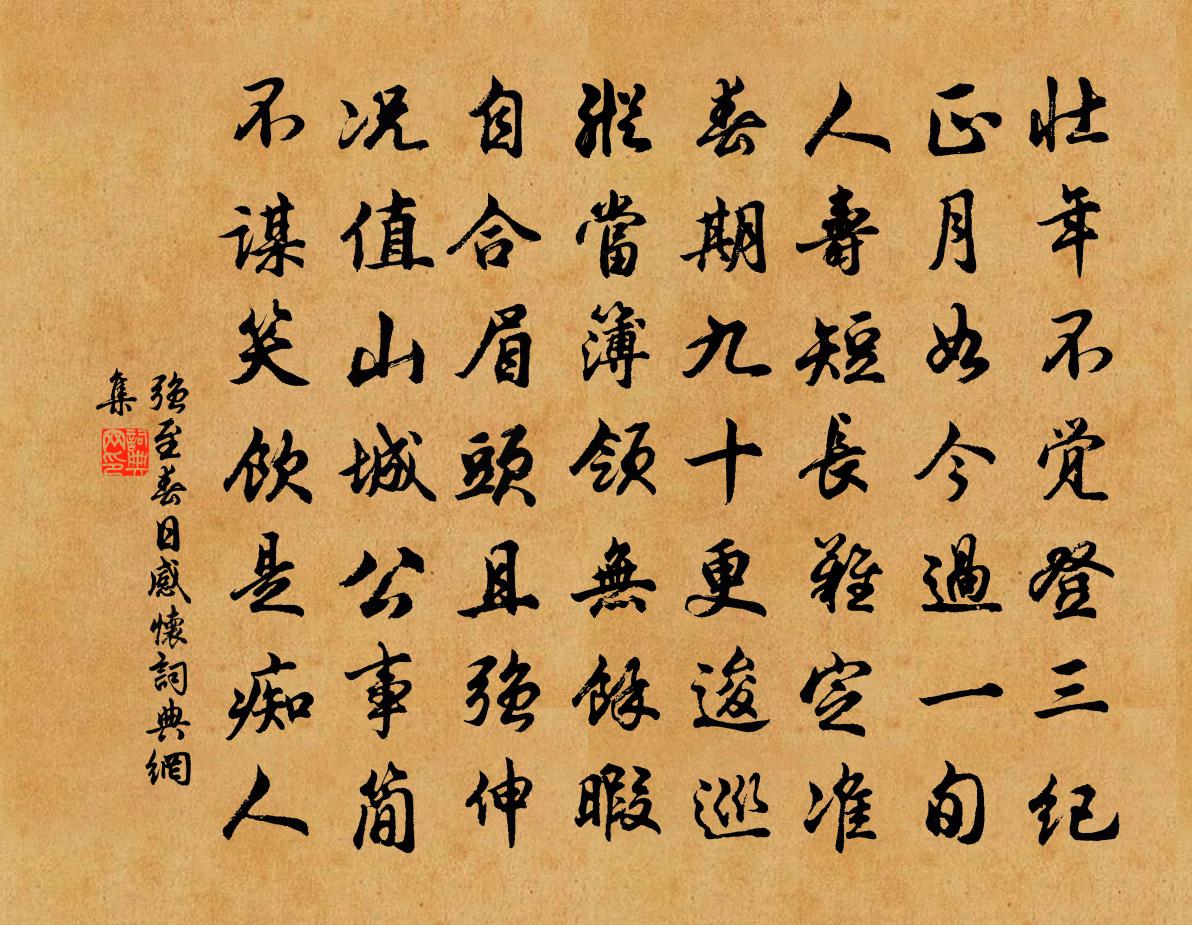 壮年不觉登三纪
正月如今過一旬
人壽短長難定准
春期九十更逡巡
縱當簿領無餘暇
自合眉頭且強伸
况值山城公事简
不谋笑飲是痴人
強至春日感懷詞典網
集
詞典
网印